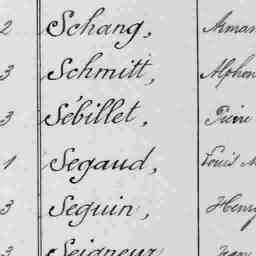 2 Schang, Arman
3 Schmitt, Alphon
3 Sébillet, Pierre
1 Segaud, Louis M
3 Seguin, Henry
3 Seigneur Jean